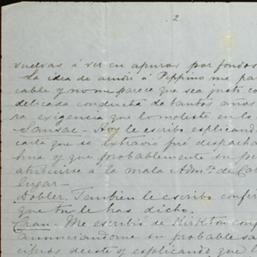 2
vuelvas á ver en apuros por fondos
La idea de amón á Pippino me pa
cable y no me parece que sea justo co
delicada conducta de tantos años
ra exigencia que lo moleste en lo
Sansac - Hoy le escribo esplicand
carta que se estravió fué despacha
hna y que probablemente su pé
atribuirse á la mala Admon. de Ca
lugar.
Dobler. Tambien le escribo confir
que tu le has dicho.
Cran - Me escribió de Kirkton con
anunciandome su probable sa
citas deste y esplicando que